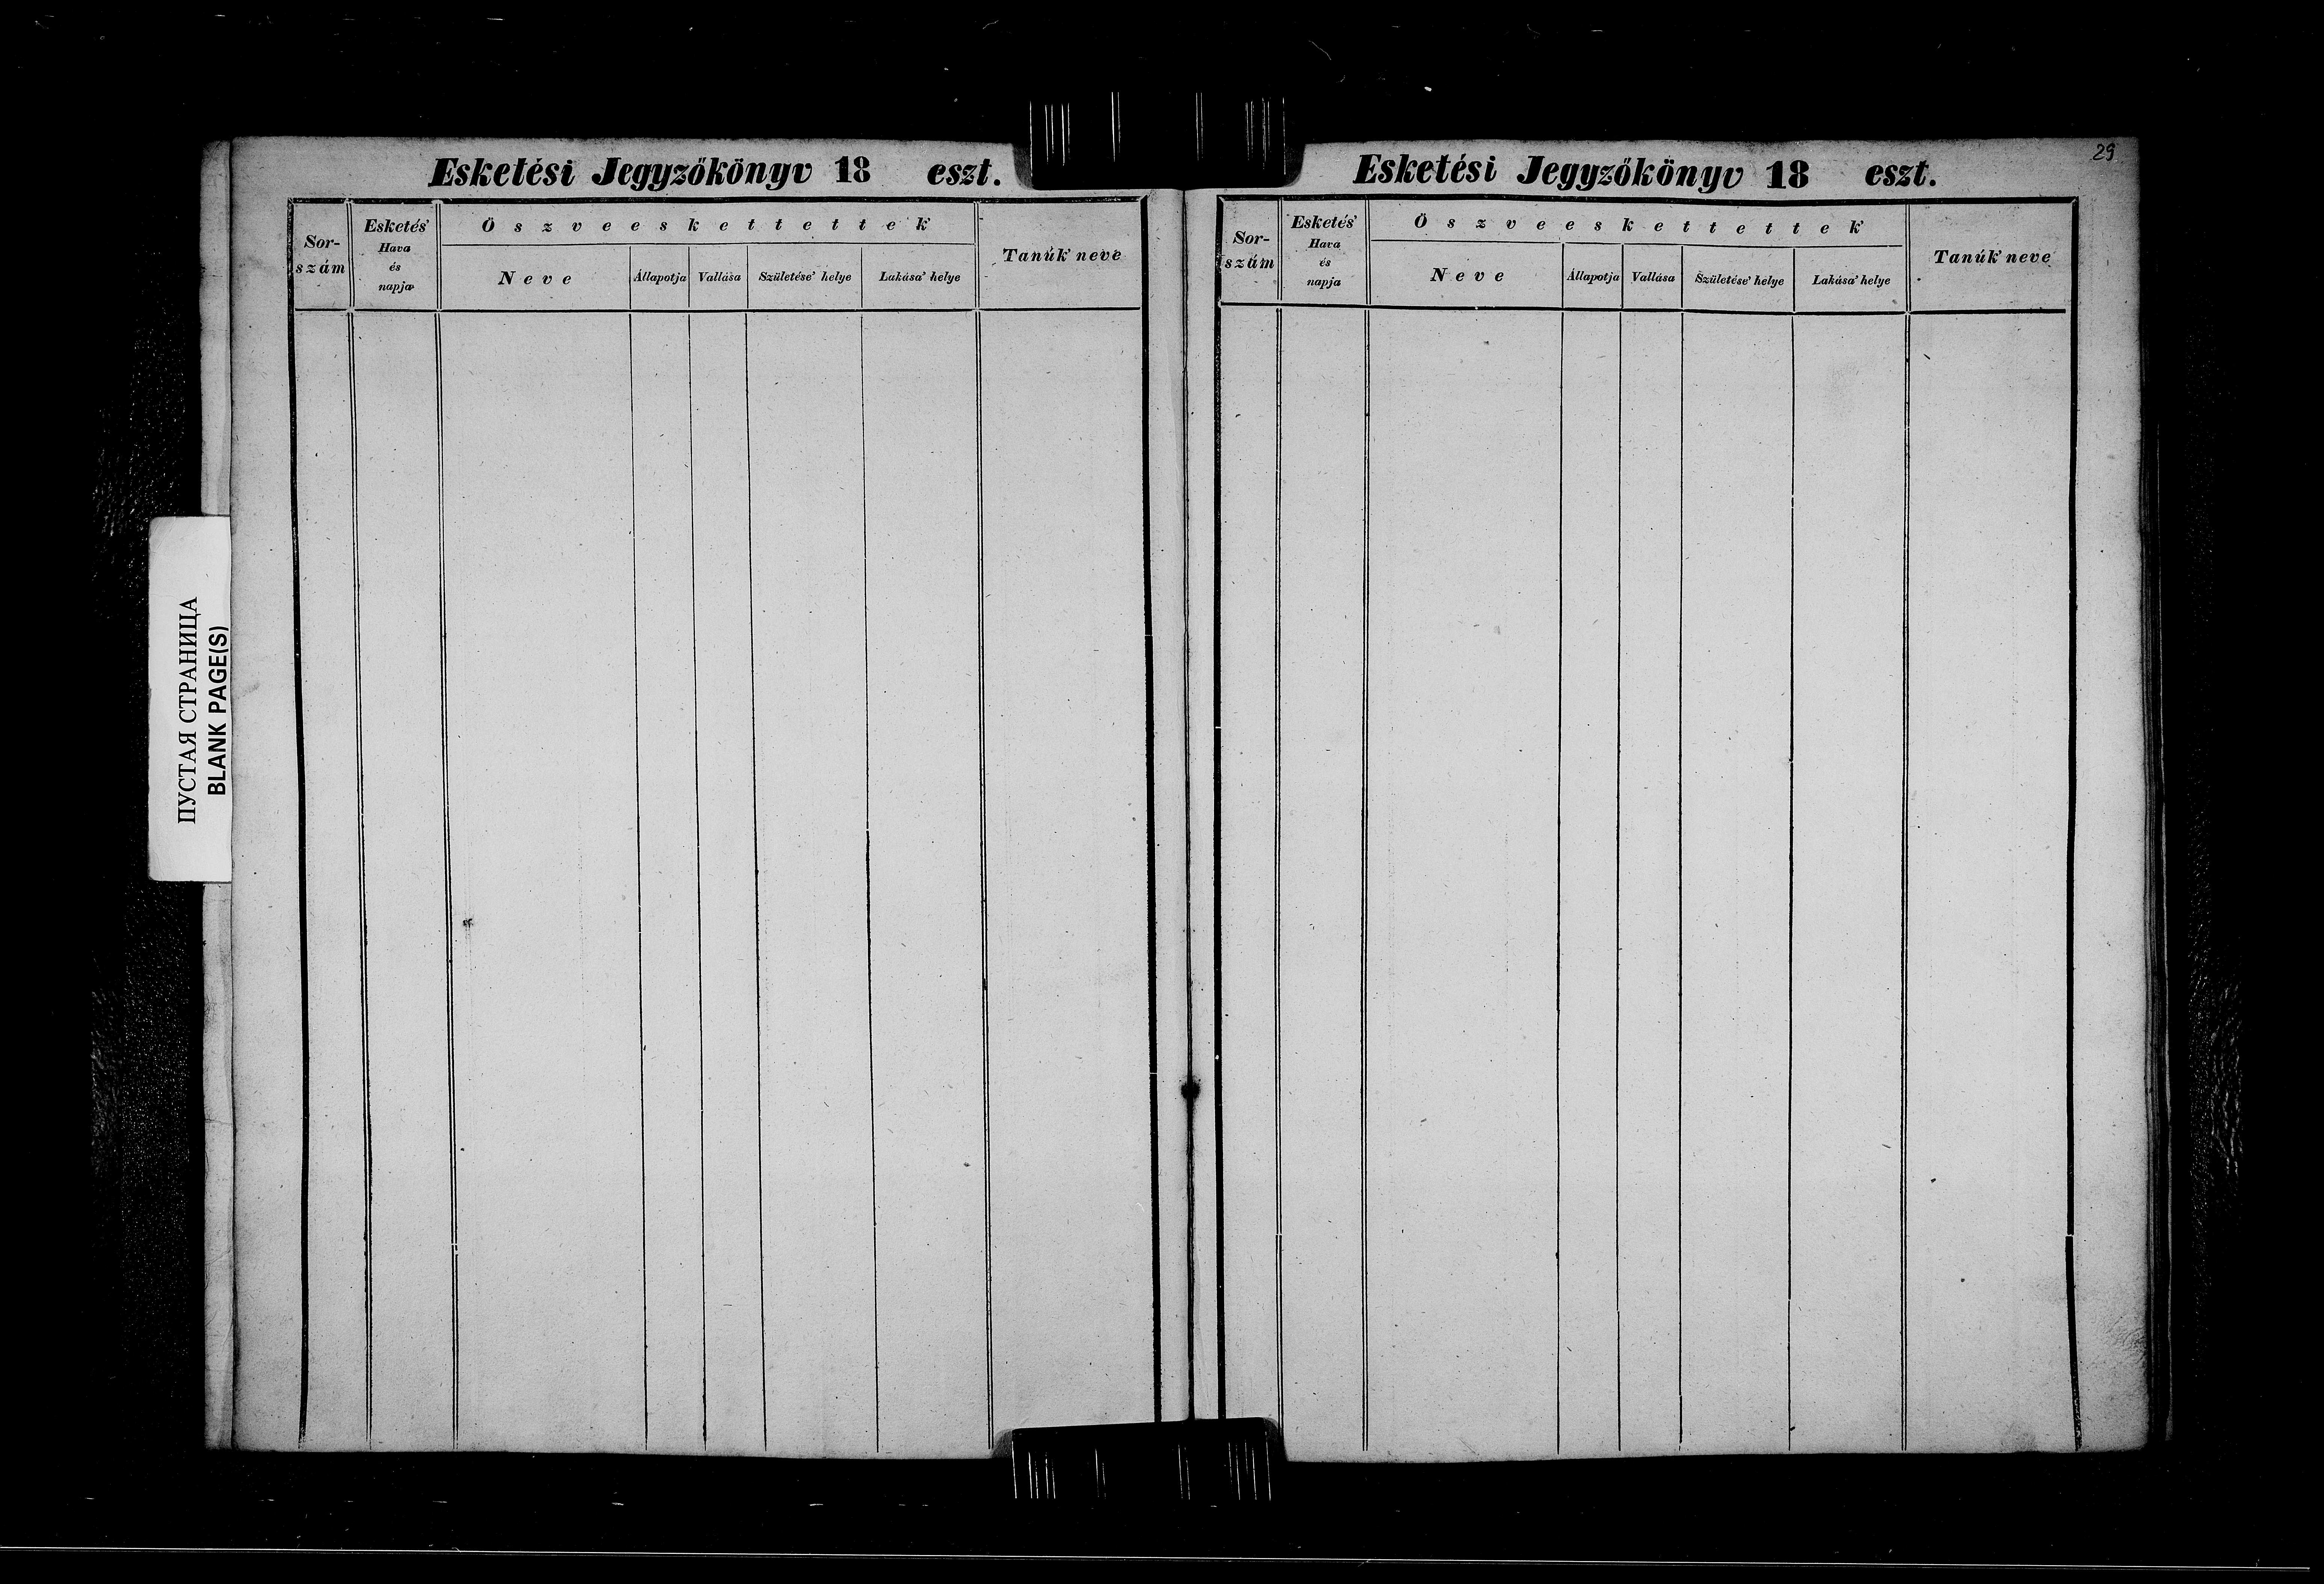 Esketési Jegyzőkönyv 18 eszt.
Sor-
szám
Esketés'
Hava
és
napja
Öszveeskettettek'
Neve
Állapotja
Vallása
Születése' helye
Lakása' helye
Tanúk' neve
ПУСТАЯ СТРАНИЦА
BLANK PAGE(S)
29
Esketési Jegyzőkönyv 18 eszt.
Sor-
szám
Esketés'
Hava
és
napja
Öszveeskettettek'
Neve
Állapotja
Vallása
Születése' helye
Lakása' helye
Tanúk' neve